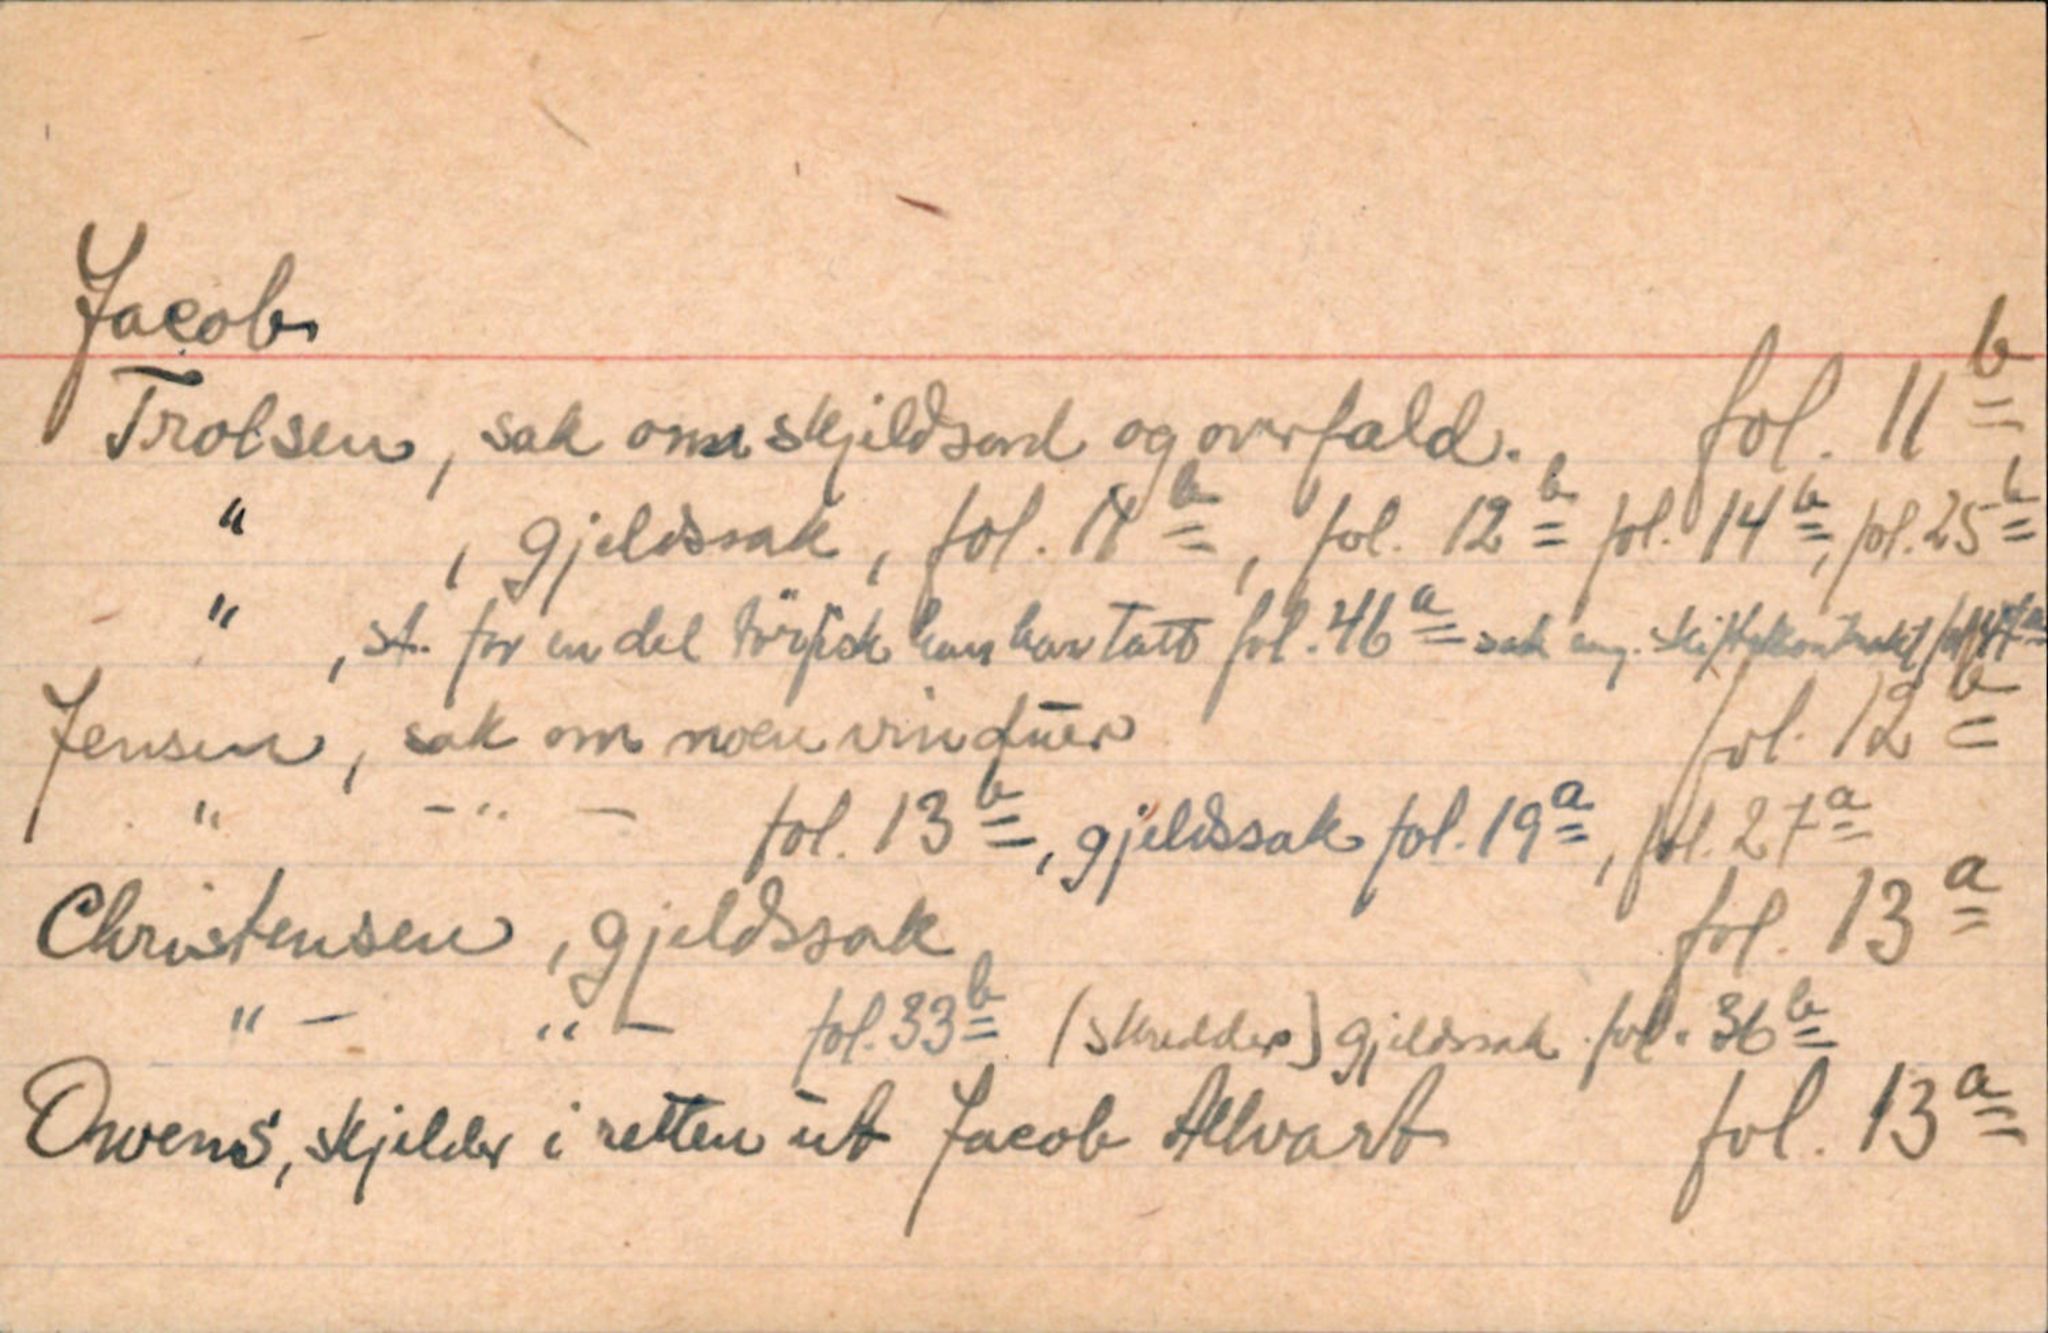 Jacob
Trolsen, sak om skjeldsord og overfald. fol. 11 b
" , gjeldssak, fol. 11 b, fol. 12 b fol. 14 b, fol. 25 b
" , st. for en del törfisk han har tatt fol. 46 a sak ang. skiftekontrakt fol. 47 a
Jensen, sak om noen vinduer fol. 12 b
" - " - fol. 13 b, gjeldssak fol. 19 a, fol. 27 a
Christensen, gjeldssak fol. 13 a
" - " - fol. 33 b (skredder) gjeldssak fol. 36 b
Owens, skjelder i retten ut Jacob Allvart fol. 13 a